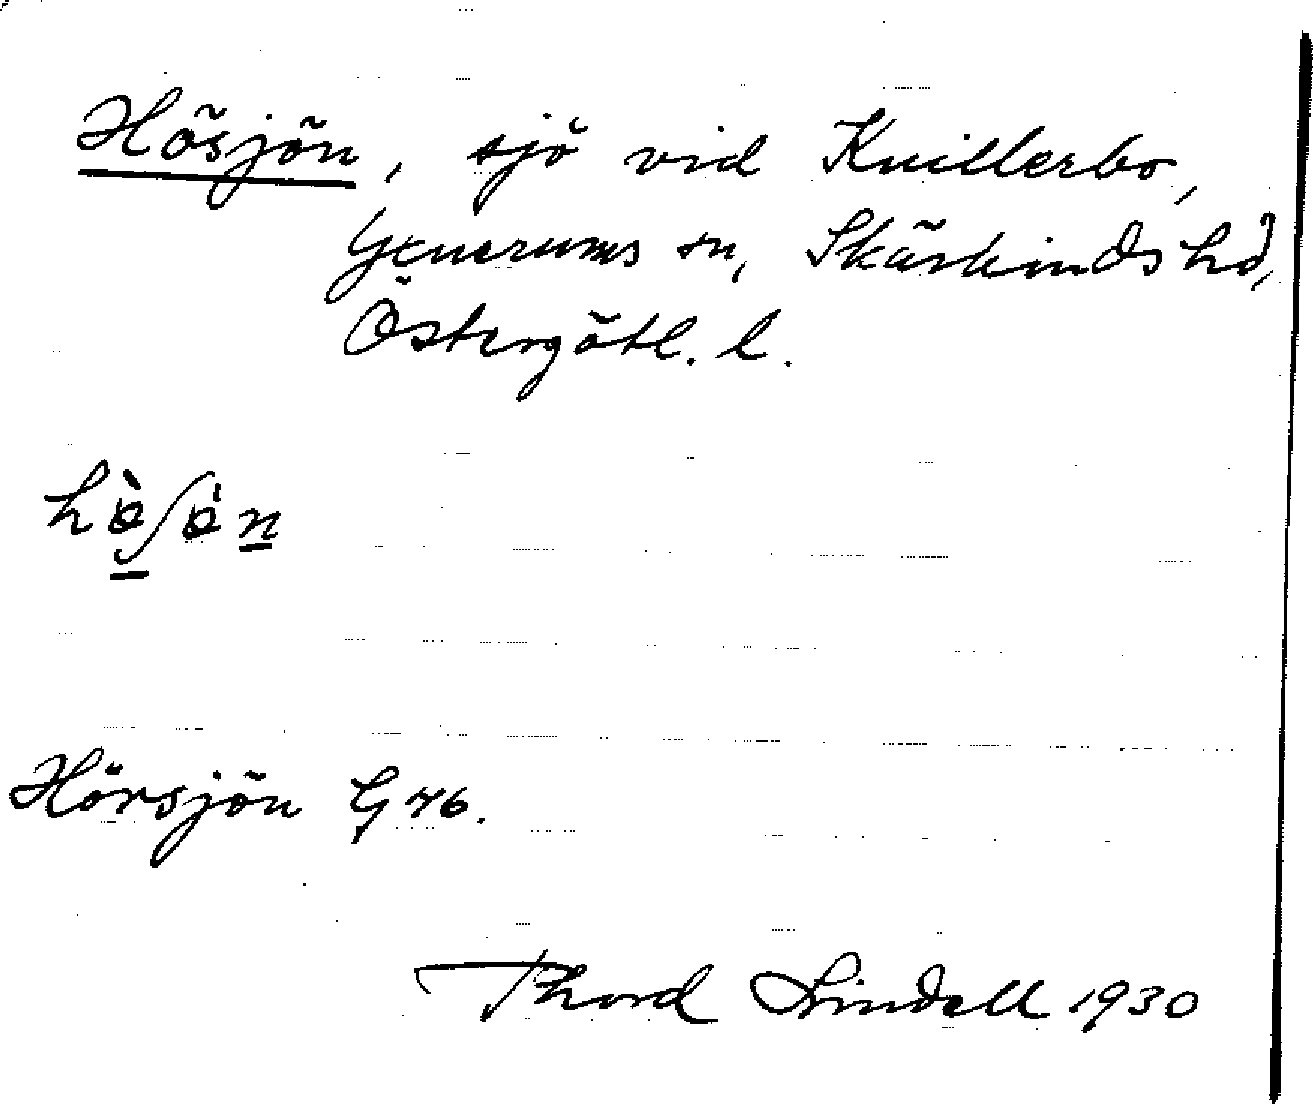 Hösjön, sjö vid Knillerbo,
Yxnerums sn, Skärkinds hd,
Östergötl. l.
Hörsjön G 76.
Thord Lindell 1930